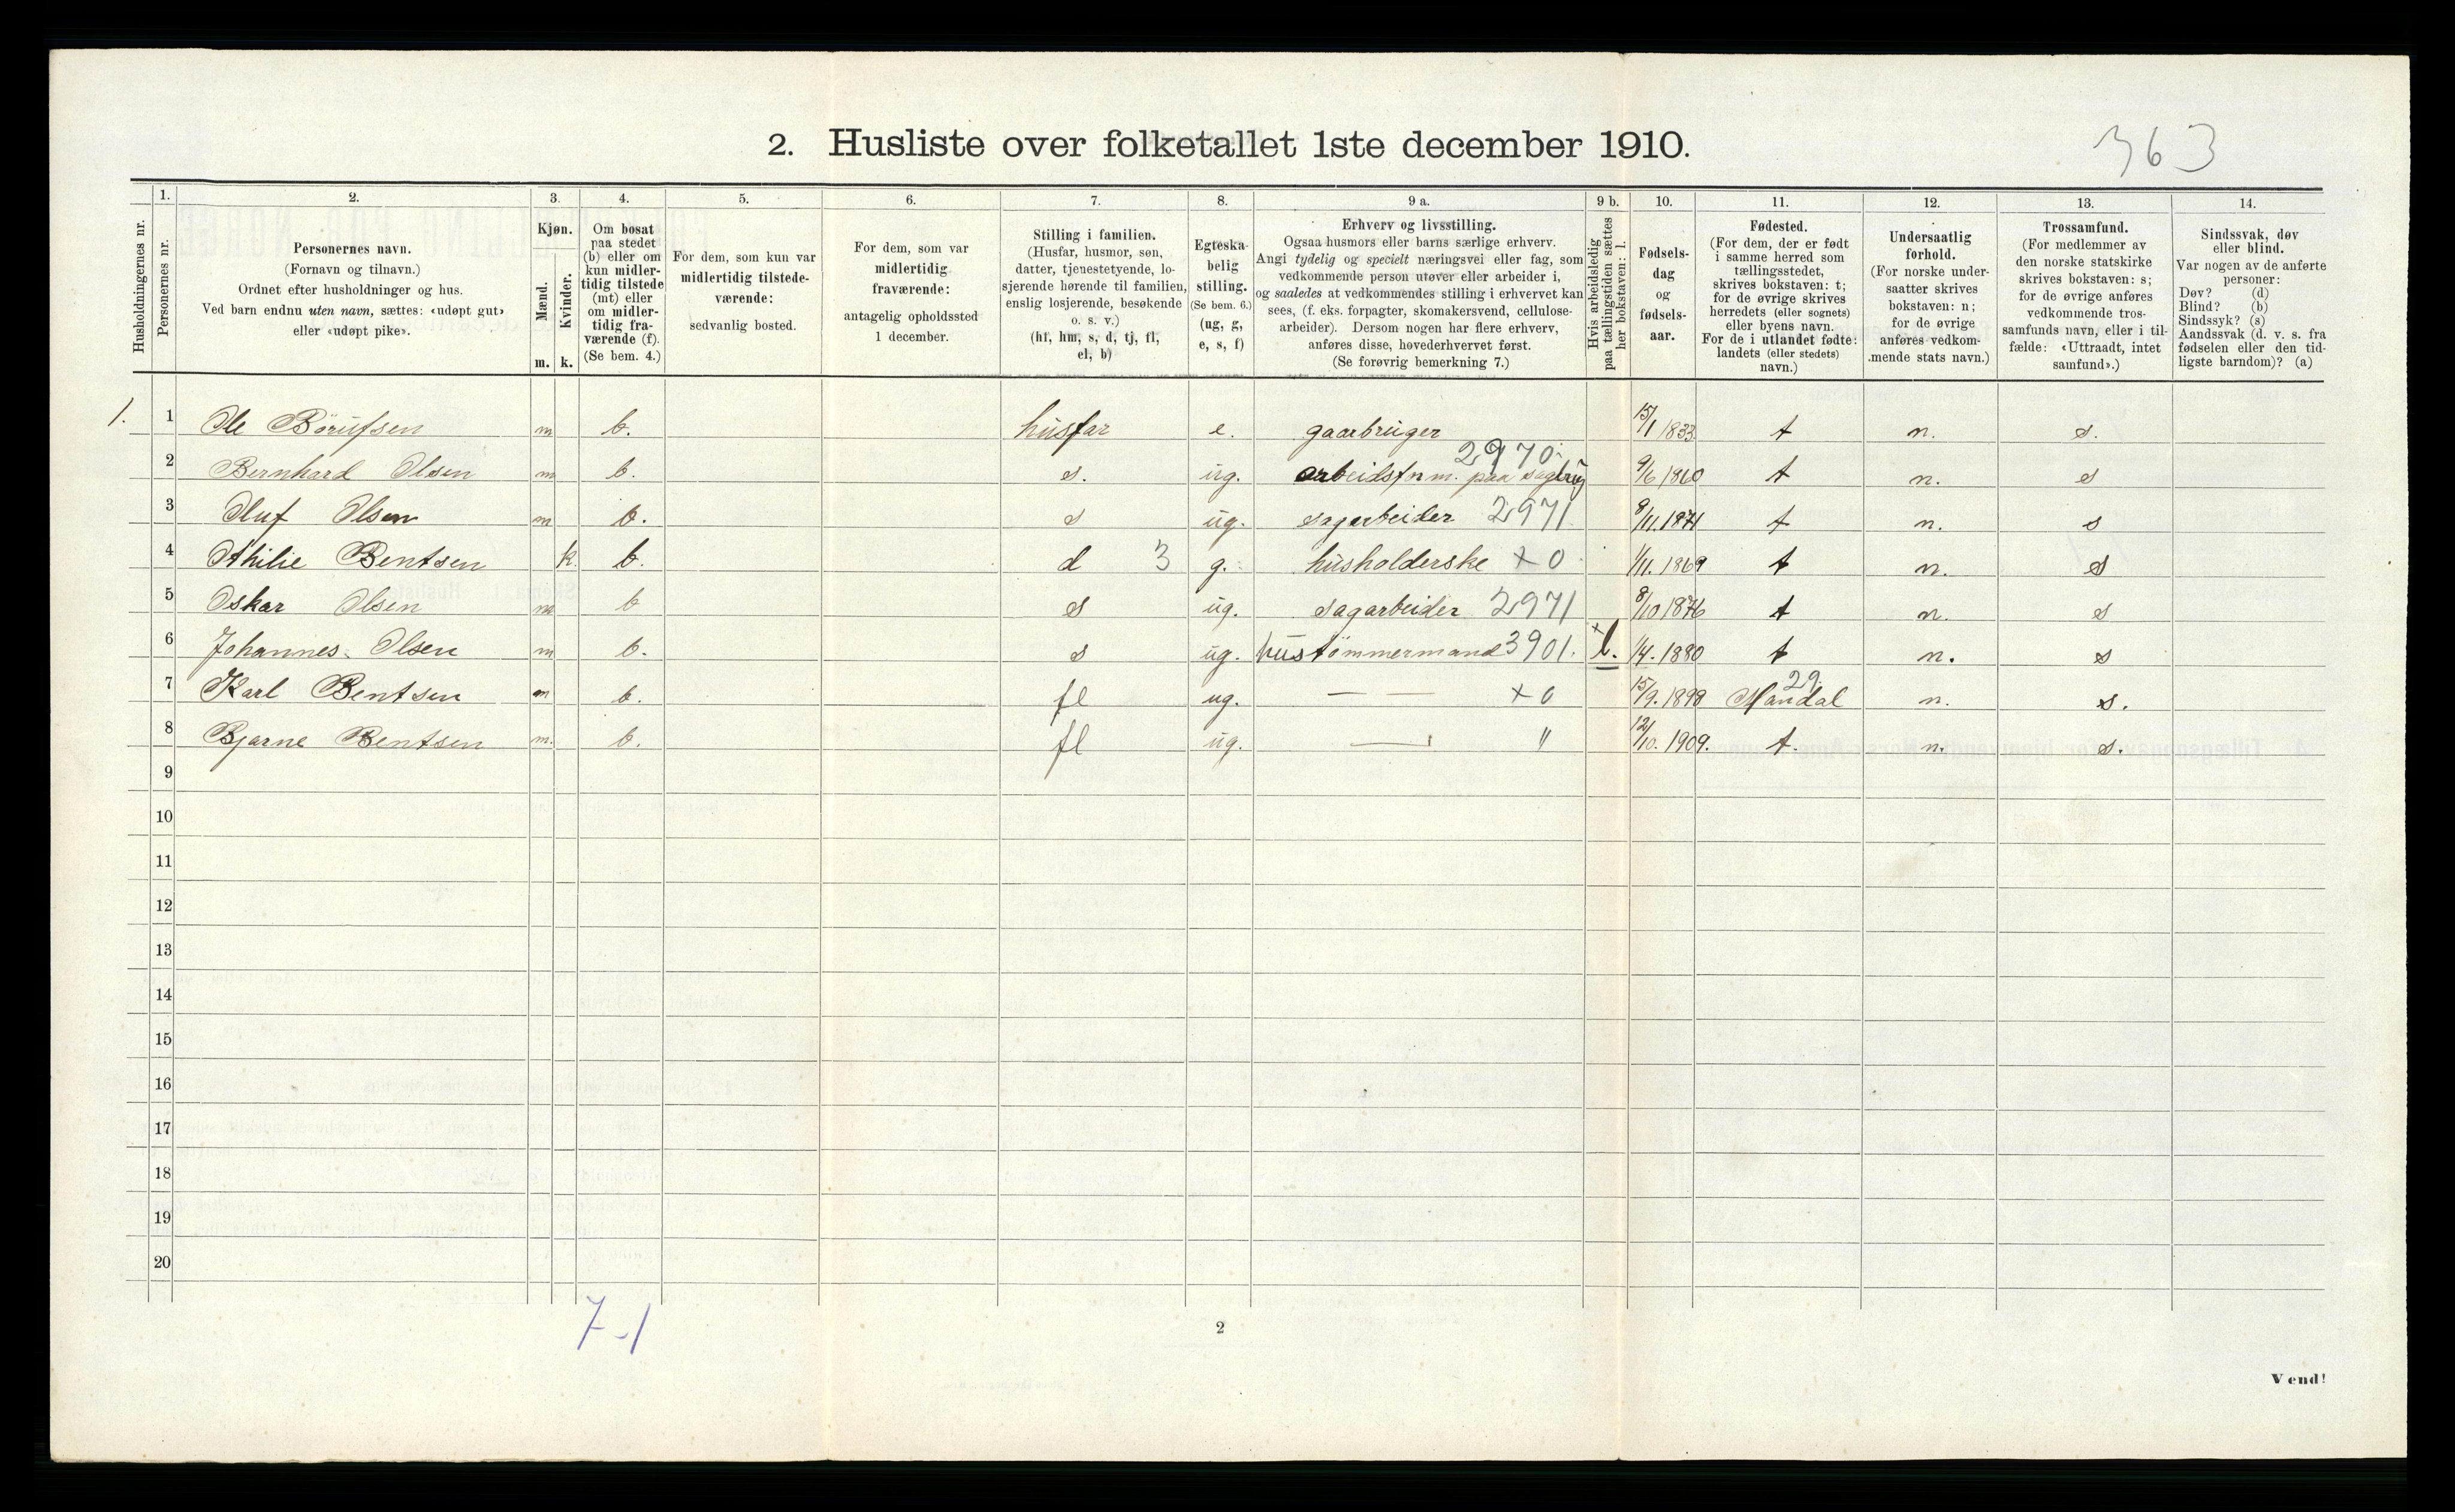 2. Husliste over folketallet 1ste december 1910.
363
Husholdningernes nr.
1.
Personernes nr.
2.
Personernes navn.
(Fornavn og tilnavn.)
Ordnet efter husholdninger og hus.
Ved barn endnu uten navn, sættes: «udøpt gut»
eller «udøpt pike».
3.
Kjøn.
Mænd.
Kvinder.
m. k.
4.
Om bosat
paa stedet
(b) eller om
kun midler-
tidig tilstede
(mt) eller
om midler-
tidig fra-
værende (f).
(Se bem. 4.)
5.
For dem, som kun var
midlertidig tilstede-
værende:
sedvanlig bosted.
6.
For dem, som var
midlertidig
fraværende:
antagelig opholdssted
1 december.
7.
Stilling i familien.
(Husfar, husmor, søn,
datter, tjenestetyende, lo-
sjerende hørende til familien,
enslig losjerende, besøkende
o. s. v.)
(hf, hm, s, d, tj, fl,
el, b)
8.
Egteska-
belig
stilling.
(Se bem. 6.)
(ug, g,
e, s, f)
9 a.
Erhverv og livsstilling.
Ogsaa husmors eller barns særlige erhverv.
Angi tydelig og specielt næringsvei eller fag, som
vedkommende person utøver eller arbeider i,
og saaledes at vedkommendes stilling i erhvervet kan
sees, (f. eks. forpagter, skomakersvend, cellulose-
arbeider). Dersom nogen har flere erhverv,
anføres disse, hovederhvervet først.
(Se forøvrig bemerkning 7.)
9 b.
Hvis arbeidsledig
paa tællingstiden sættes
her bokstaven: l.
10.
Fødsels-
dag
og
fødsels-
aar.
11.
Fødested.
(For dem, der er født
i samme herred som
tællingsstedet,
skrives bokstaven: t;
for de øvrige skrives
herredets (eller sognets)
eller byens navn.
For de i utlandet fødte:
landets (eller stedets)
navn.)
12.
Undersaatlig
forhold.
(For norske under-
saatter skrives
bokstaven: n;
for de øvrige
anføres vedkom-
mende stats navn.)
13.
Trossamfund.
(For medlemmer av
den norske statskirke
skrives bokstaven: s;
for de øvrige anføres
vedkommende tros-
samfunds navn, eller i til-
fælde: «Uttraadt, intet
samfund».)
14.
Sindssvak, døv
eller blind.
Var nogen av de anførte
personer:
Døv? (d)
Blind? (b)
Sindssyk? (s)
Aandssvak (d. v. s. fra
fødselen eller den tid-
ligste barndom)? (a)
1. 1 Ole Börufsen m b. husfar e. gaarbruger 15/1 1833 t n. s.
2 Bernhard Olsen m b. s. ug. arbeidsform. paa sagbrug 2970. 9/6 1860 t n. s
3 Oluf Olsen m b. s ug. sagarbeider 2971 8/11. 1871 t n. s
4 Athilie Bentsen k. b. d 3 g. husholderske x 0 1/11. 1869 t n. s
5 Oskar Olsen m b s ug. sagarbeider 2971 8/10 1876 t n. s
6 Johannes Olsen m b. s ug. hustömmermand 3901. x l. 1/4. 1880 t n. s
7 Karl Bentsen m b. fl ug. — — x 0 15/9. 1898 Mandal 29. n. s.
8 Bjarne Bentsen m. b. fl ug. — " 12/10. 1909. t. n. s.
9
10
11
12
13
14
15
16
17
18
19
20
7-1
2
Vend!